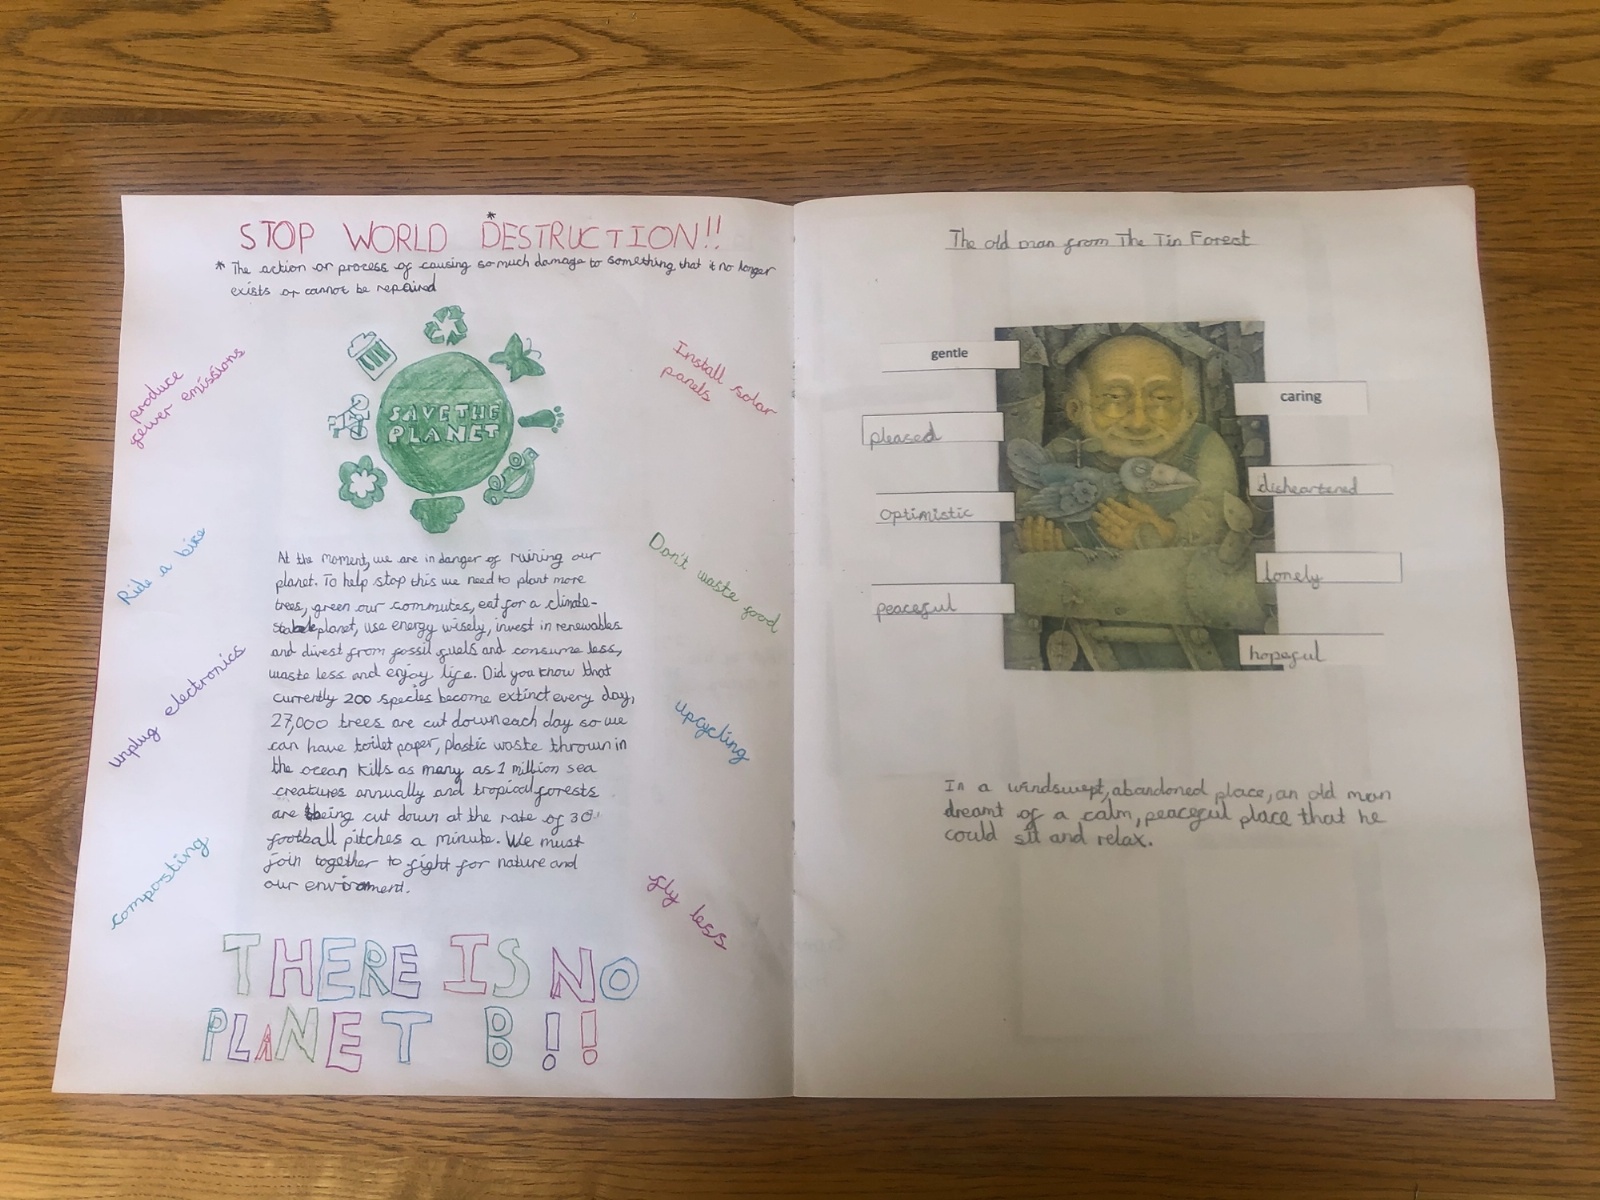 STOP WORLD DESTRUCTION!!
*
* The action or process of causing so much damage to something that it no longer
exists or cannot be repaired
produce
fewer emissions
Install solar
panels
SAVE THE
PLANET
Ride a bike
Don't waste food
unplug electronics
upcycling
composting
fly less
At the moment, we are in danger of ruining our
planet. To help stop this we need to plant more
trees, green our commutes, eat for a climate-
stable planet, use energy wisely, invest in renewables
and divest from fossil fuels and consume less,
waste less and enjoy life. Did you know that
currently 200 species become extinct every day,
27,000 trees are cut down each day so we
can have toilet paper, plastic waste thrown in
the ocean kills as many as 1 million sea
creatures annually and tropical forests
are being cut down at the rate of 30
football pitches a minute. We must
join together to fight for nature and
our enviroment.
THERE IS NO
PLANET B!!
The old man from The Tin Forest
gentle
pleased
optimistic
peaceful
caring
disheartened
lonely
hopeful
In a windswept, abandoned place, an old man
dreamt of a calm, peaceful place that he
could sit and relax.